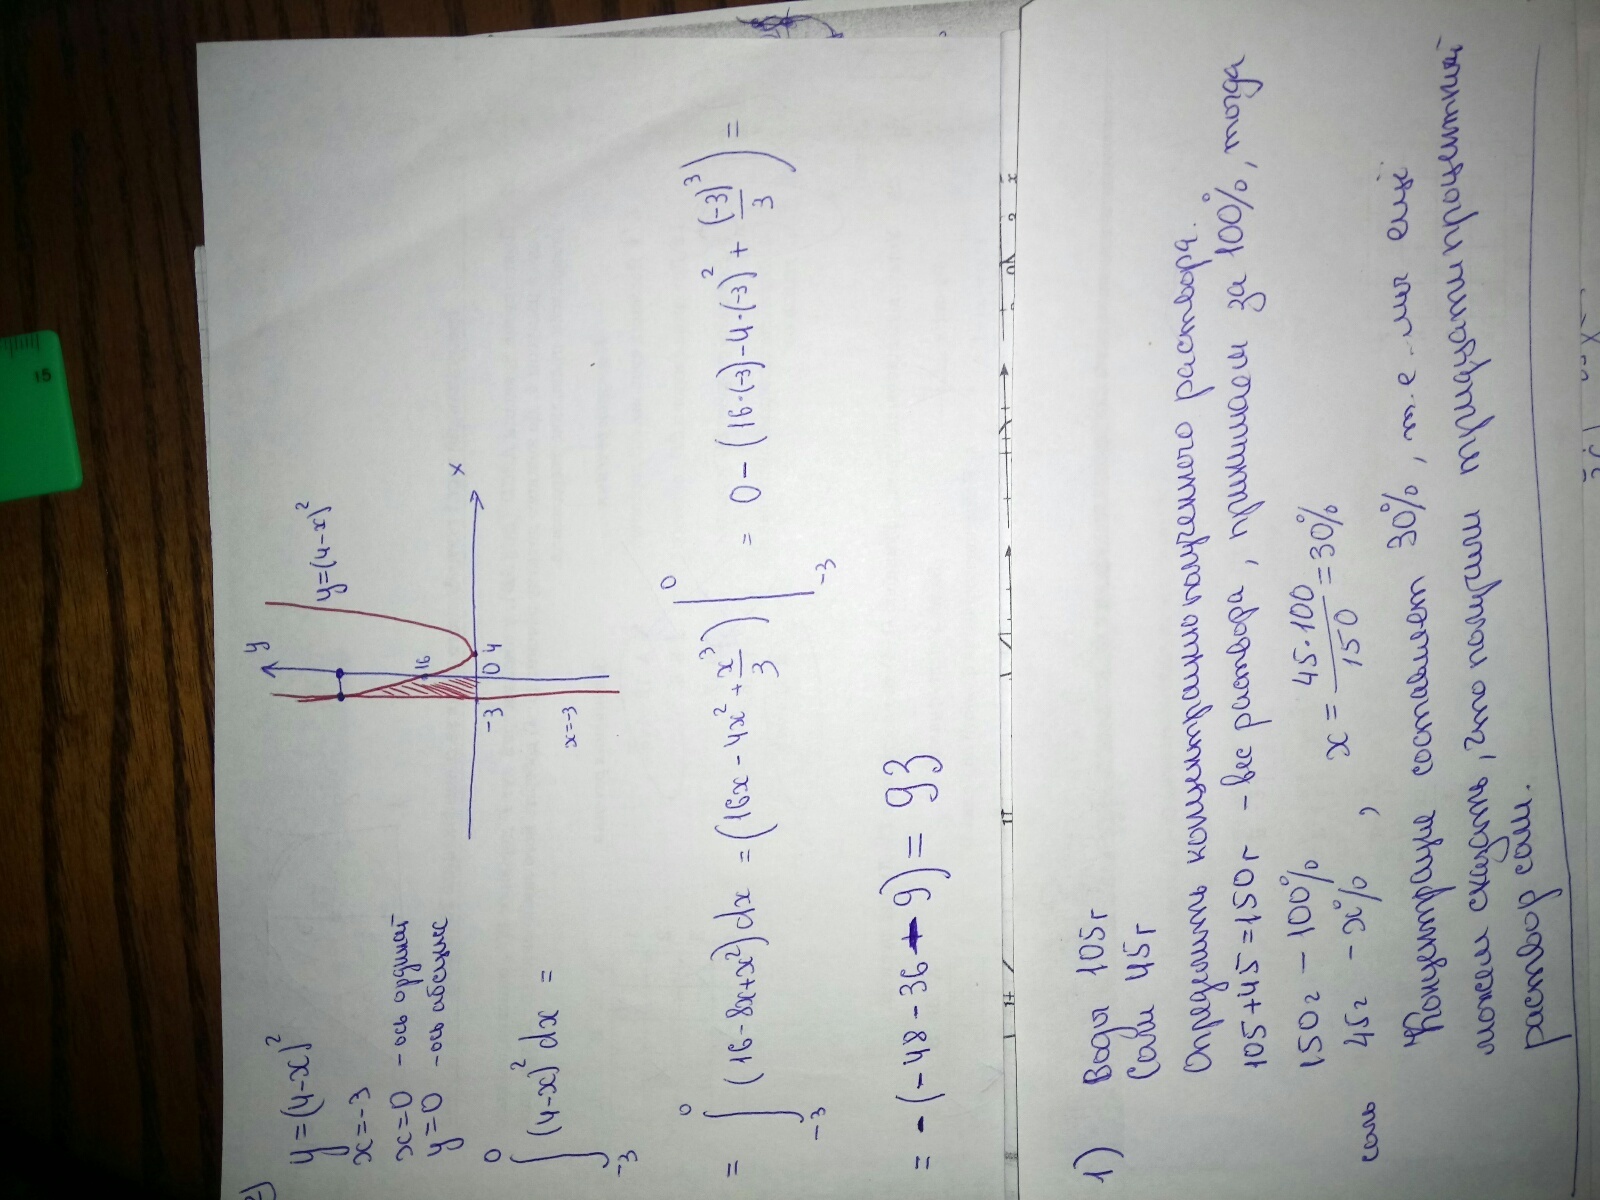 2)
y=(4-x)²
x=-3
x=0 - ось ординат
y=0 - ось абсцисс
y
y=(4-x)²
16
-3
0
4
x
x=-3
∫₋₃⁰ (4-x)² dx =
= ∫₋₃⁰ (16-8x+x²)dx = (16x - 4x² + x³/3) |₋₃⁰ = 0 - (16·(-3) - 4·(-3)² + (-3)³/3) =
= - (-48 - 36 + 9) = 93
1) Воды 105г
Соли 45г
Определить концентрацию полученного раствора.
105+45=150г - вес раствора, принимаем за 100%, тогда
150г - 100%
соль 45г - x%, x = 45·100/150 = 30%
Концентрация составляет 30%, т.е. мы ещё
можем сказать, что получили тридцатипроцентный
раствор соли.
15